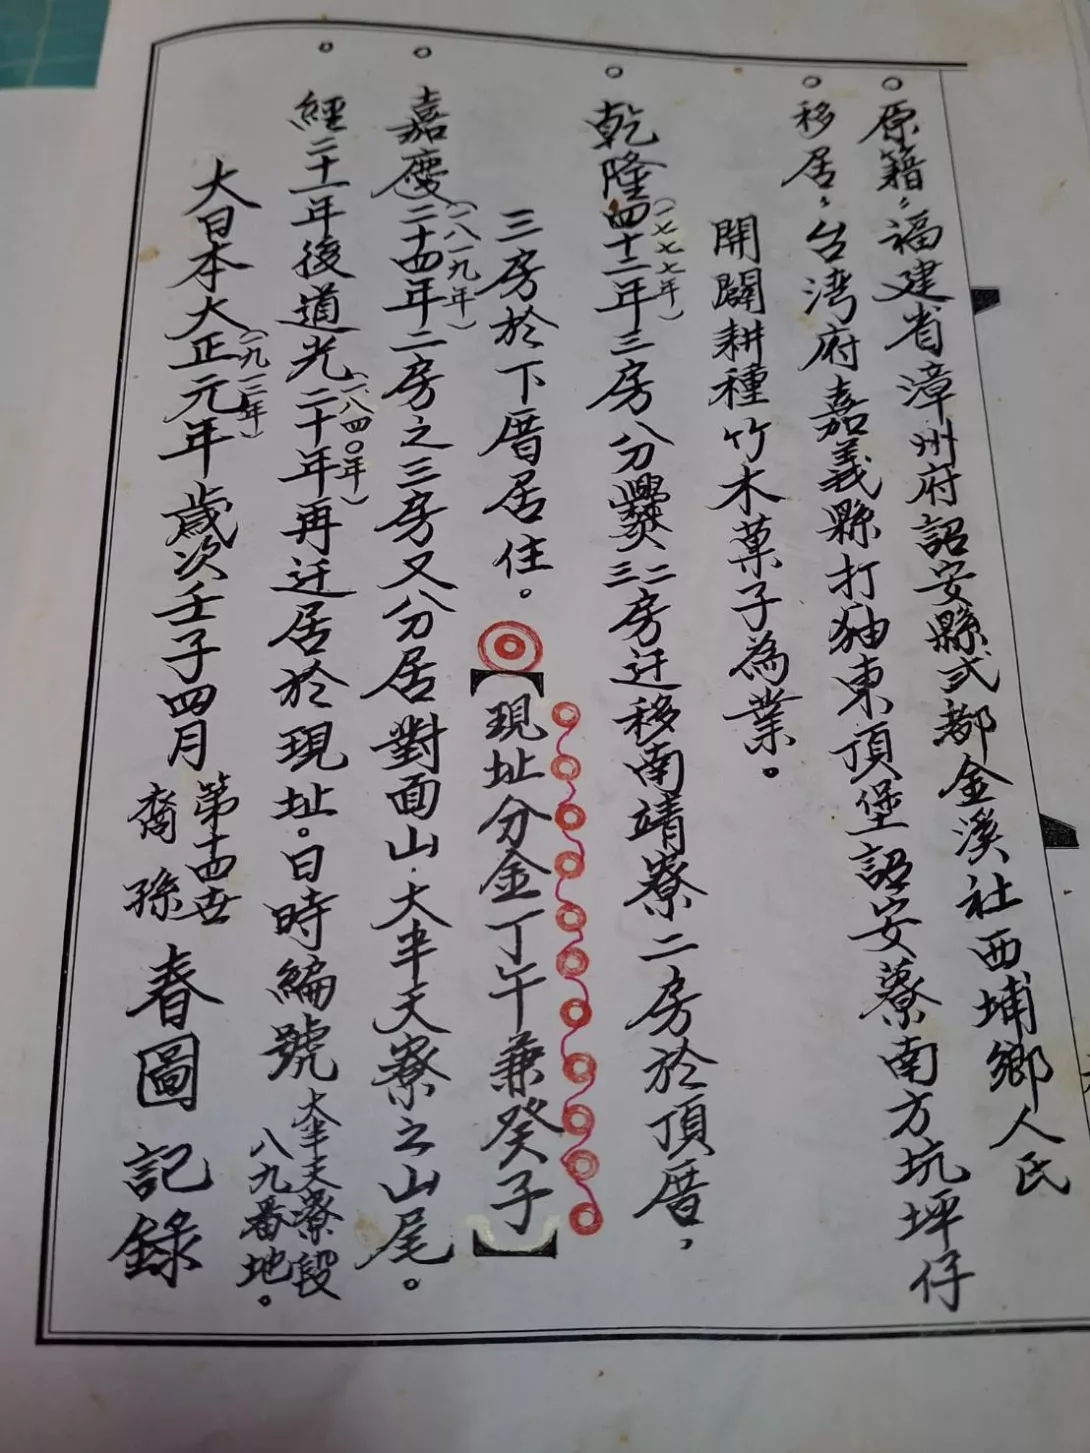 。原籍:福建省漳州府詔安縣弍都金溪社西埔鄉人民
。移居:台湾府嘉義縣打猫東頂堡詔安藔南方坑坪仔
開闢耕種竹木菓子為業。
。乾隆四十二年(一七七七年)三房分爨二三房迁移南靖寮二房於頂厝,
三房於下厝居住。◎【現址分金丁午兼癸子】
。嘉慶二十四年(一八一九年)二房之三房又分居對面山.大半天寮之山尾。
。經二十一年後道光二十年(一八四〇年)再迁居於現址。日時編號大半天藔段八九番地。
大日本大正元年(一九一二年)歲次壬子四月 第十四世裔孫 春圖 記錄